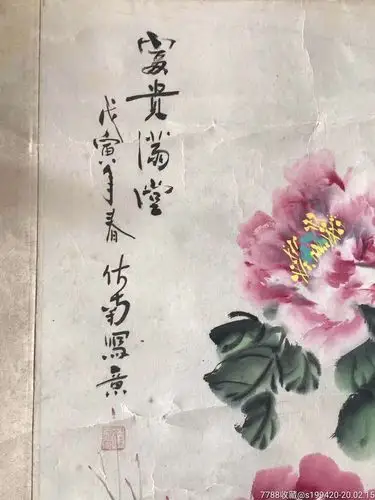 富贵满堂
戊寅年春 仕南写意
7788收藏@s199420-20.02.15